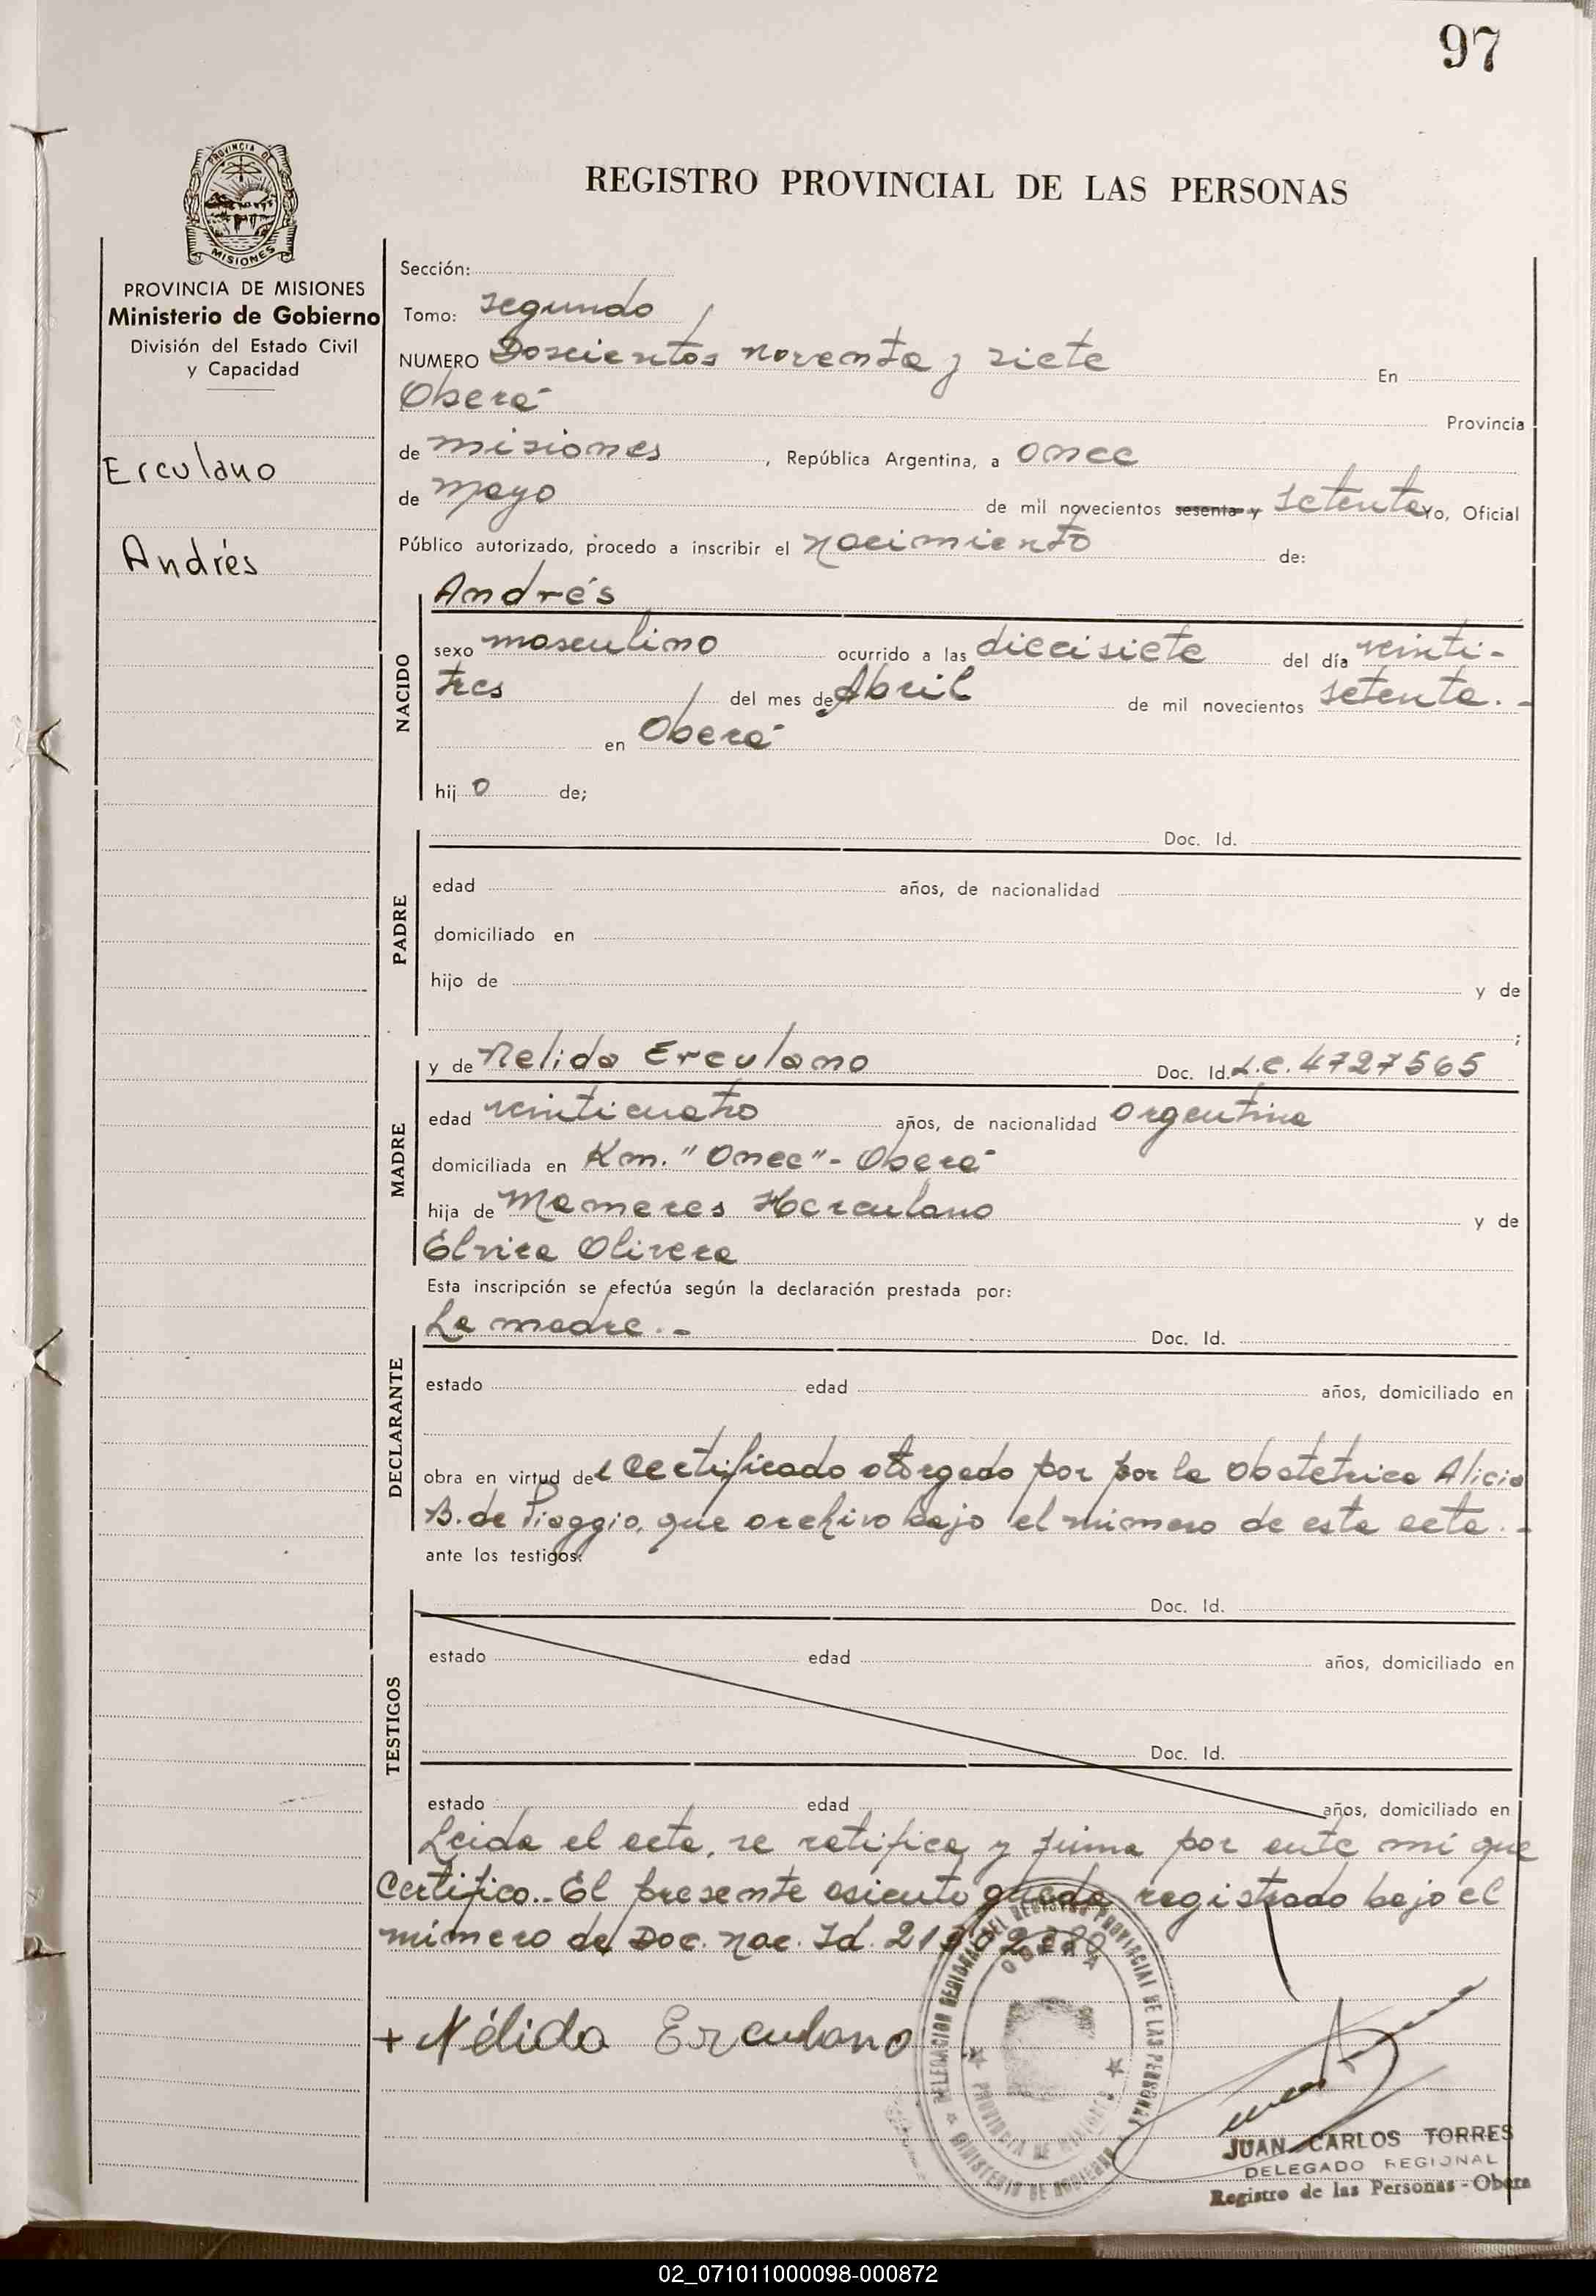 97
PROVINCIA DE
MISIONES
REGISTRO PROVINCIAL DE LAS PERSONAS
PROVINCIA DE MISIONES
Ministerio de Gobierno
División del Estado Civil
y Capacidad
Erculano
Andrés
Sección:
Tomo: segundo
NUMERO Doscientos noventa y siete En
Oberá Provincia
de misiones, República Argentina, a once
de mayo de mil novecientos sesenta y setenta Yo, Oficial
Público autorizado, procedo a inscribir el nacimiento de:
NACIDO
Andrés
sexo masculino ocurrido a las diecisiete del día veinti-
tres del mes de Abril de mil novecientos setenta.-
en Oberá
hij o de;
PADRE
Doc. Id.
edad años, de nacionalidad
domiciliado en
hijo de y de
;
MADRE
y de Nelida Erculano Doc. Id. L.C. 4727565
edad veinticuatro años, de nacionalidad argentina
domiciliada en Km. "Once"- Oberá
hija de Mameres Herculano y de
Elvira Olivera
Esta inscripción se efectúa según la declaración prestada por:
DECLARANTE
La madre.- Doc. Id.
estado edad años, domiciliado en
obra en virtud de certificado otorgado por por la Obstetrica Alicia
B. de Piaggio, que archivo bajo el número de esta acta.-
ante los testigos:
TESTIGOS
Doc. Id.
estado edad años, domiciliado en
Doc. Id.
estado edad años, domiciliado en
Leida el acta, se ratifica y firma por ante mi que
Certifico.- El presente asiento queda registrado bajo el
número de Doc. Nac. Id.
+ Nélida Erculano
DELEGACION REGIONAL DEL REGISTRO PROVINCIAL DE LAS PERSONAS
OBERA
PROVINCIA DE MISIONES
MINISTERIO DE GOBIERNO
JUAN CARLOS TORRES
DELEGADO REGIONAL
Registro de las Personas - Obera
02_071011000098-000872